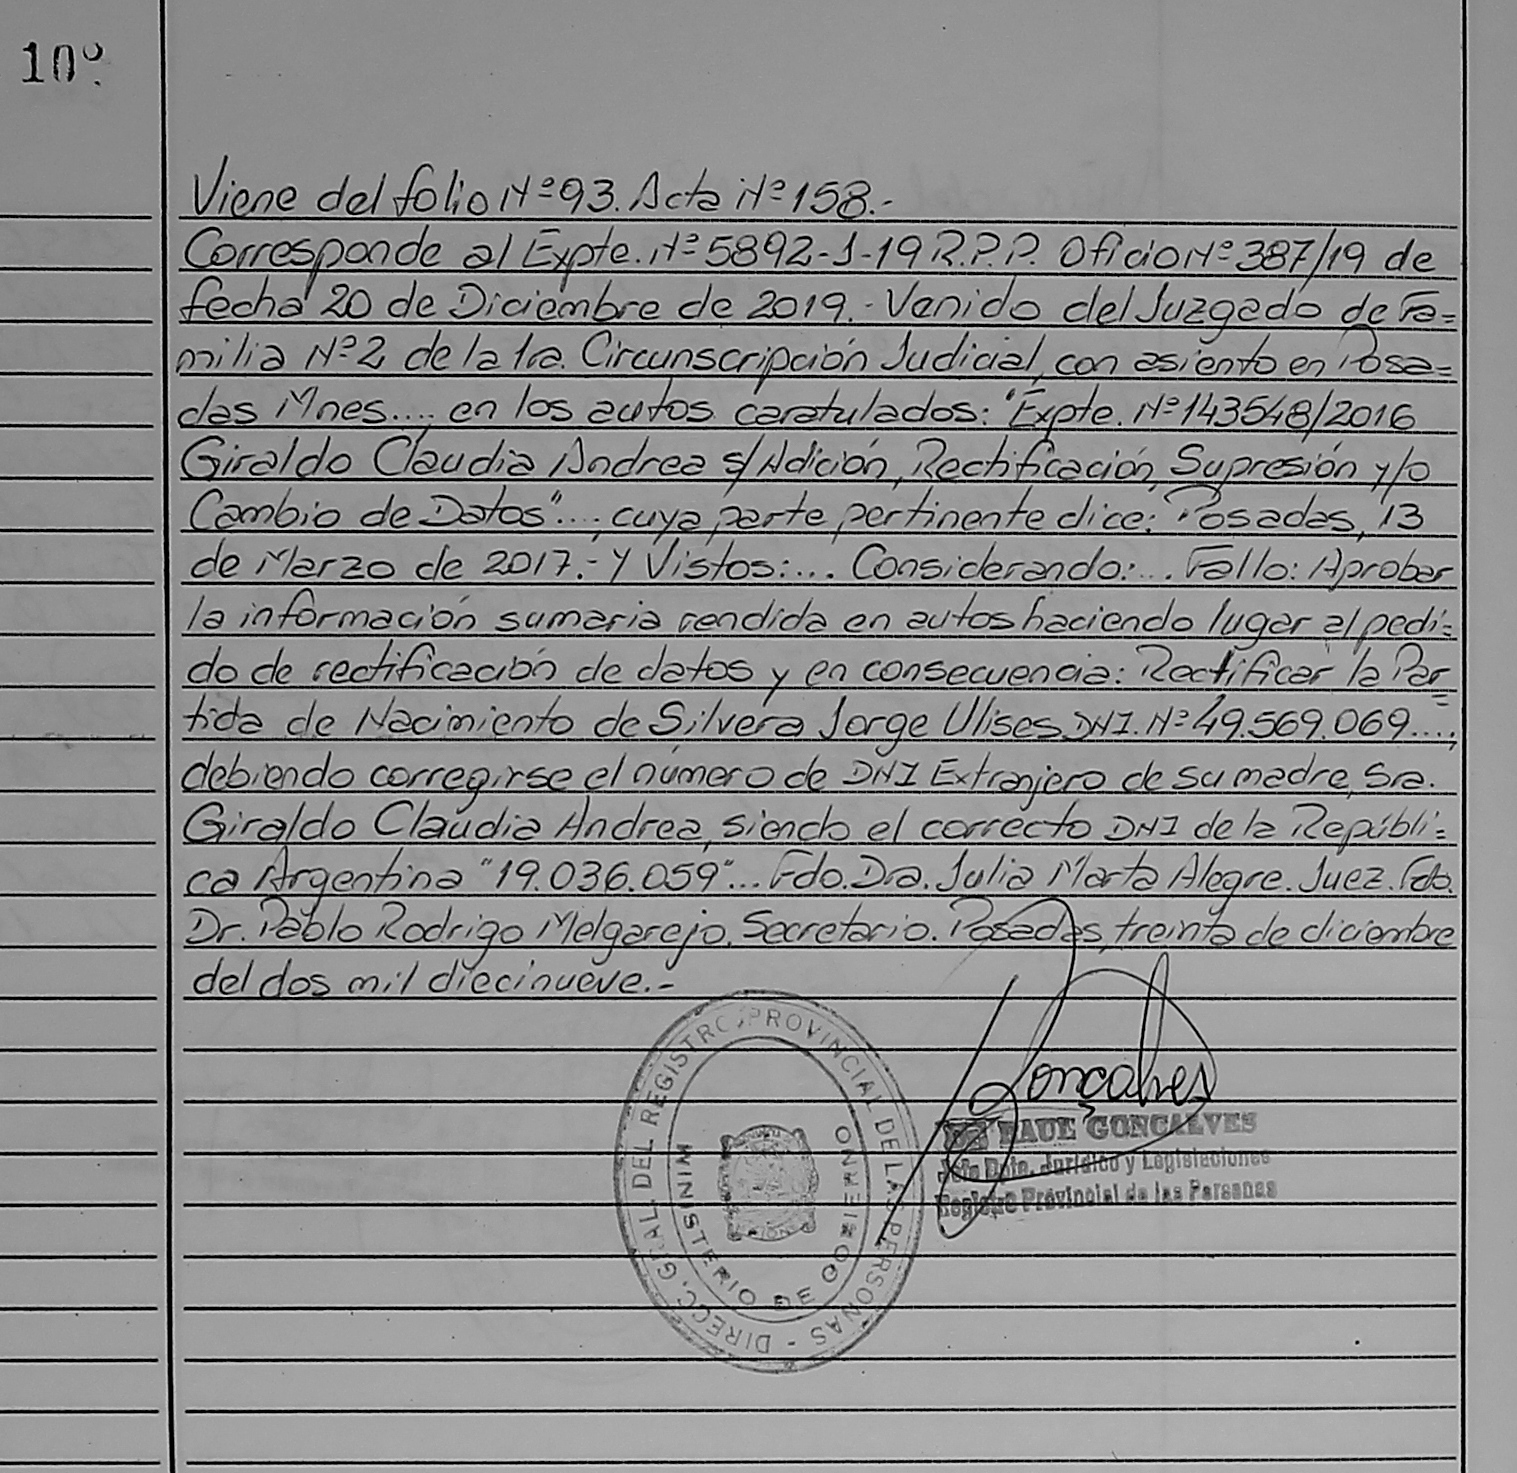 10º
Viene del folio Nº 93. Acta Nº 158.-
Corresponde al Expte. Nº 5892-J-19 R.P.P. Oficio Nº 387/19 de
fecha 20 de Diciembre de 2019.- Venido del Juzgado de Fa=
milia Nº 2 de la 1ra. Circunscripción Judicial, con asiento en Posa=
das Mnes...., en los autos caratulados: "Expte. Nº 143548/2016
Giraldo Claudia Andrea s/Adición, Rectificación, Supresión y/o
Cambio de Datos"..., cuya parte pertinente dice: "Posadas, 13
de Marzo de 2017.- Y Vistos:... Considerando:... Fallo: Aprobar
la información sumaria rendida en autos haciendo lugar al pedi=
do de rectificación de datos y en consecuencia: Rectificar la Par=
tida de Nacimiento de Silvera Jorge Ulises DNI. Nº 49.569.069....,
debiendo corregirse el número de DNI Extranjero de su madre, Sra.
Giraldo Claudia Andrea, siendo el correcto DNI de la Repúbli=
ca Argentina "19.036.059"... Fdo. Dra. Julia Marta Alegre. Juez. Fdo.
Dr. Pablo Rodrigo Melgarejo. Secretario. Posadas, treinta de diciembre
del dos mil diecinueve.-
DIRECC. GRAL. DEL REGISTRO PROVINCIAL DE LAS PERSONAS -
MINISTERIO DE GOBIERNO
Gonçalves
RAUL GONCALVES
Jefe Dpto. Jurídico y Legislaciones
Registro Provincial de las Personas